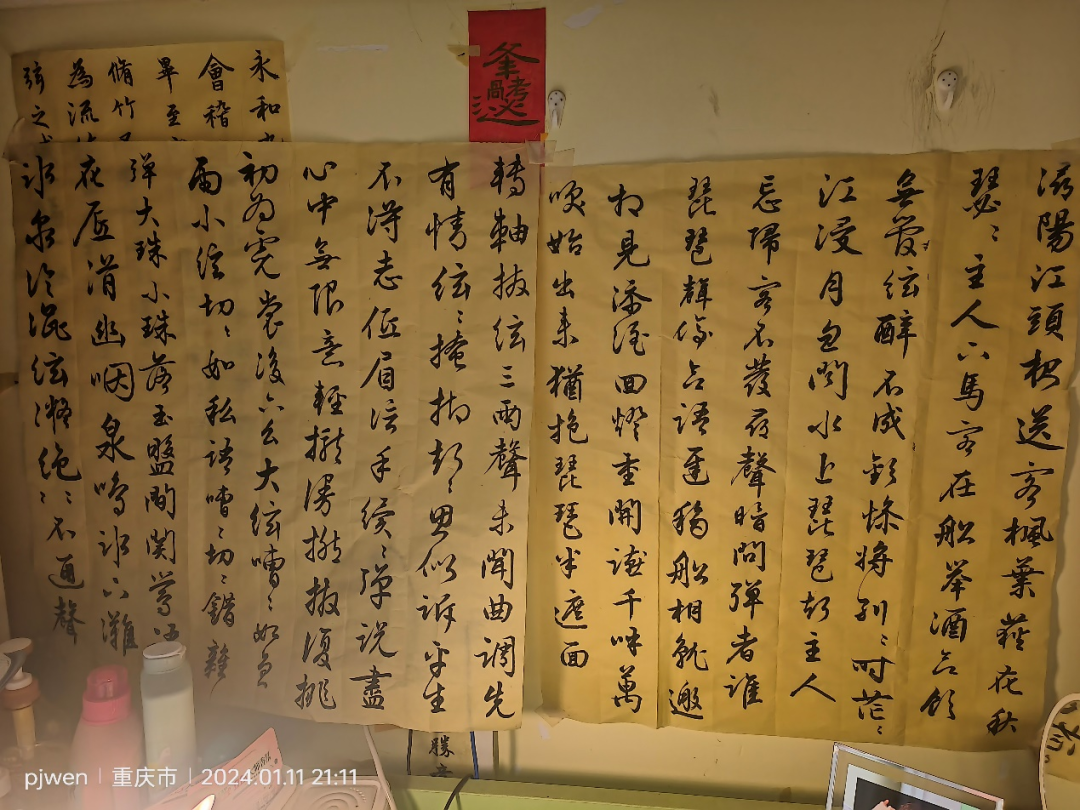 潯陽江頭夜送客楓葉荻花秋
瑟〻主人下馬客在船舉酒欲飲
無管絃醉不成歡慘將別〻時茫〻
江浸月忽聞水上琵琶聲主人
忘歸客不發尋聲暗問彈者誰
琵琶聲停欲語遲移船相就邀
相見添酒回燈重開讌千呼萬
喚始出來猶抱琵琶半遮面
轉軸撥絃三兩聲未聞曲調先
有情絃〻掩抑聲〻思似訴平生
不得志低眉信手續〻彈說盡
心中無限意輕攏漫撚撥復挑
初為霓裳後六幺大絃嘈〻如急
雨小絃切〻如私語嘈〻切〻錯雜
彈大珠小珠落玉盤間關鶯語
花底滑幽咽泉鳴冰下灘
冰泉冷澀絃凝絕〻不通聲
永和
會稽
畢至
脩竹
為流
之
勝
pjwen | 重庆市 | 2024.01.11 21:11